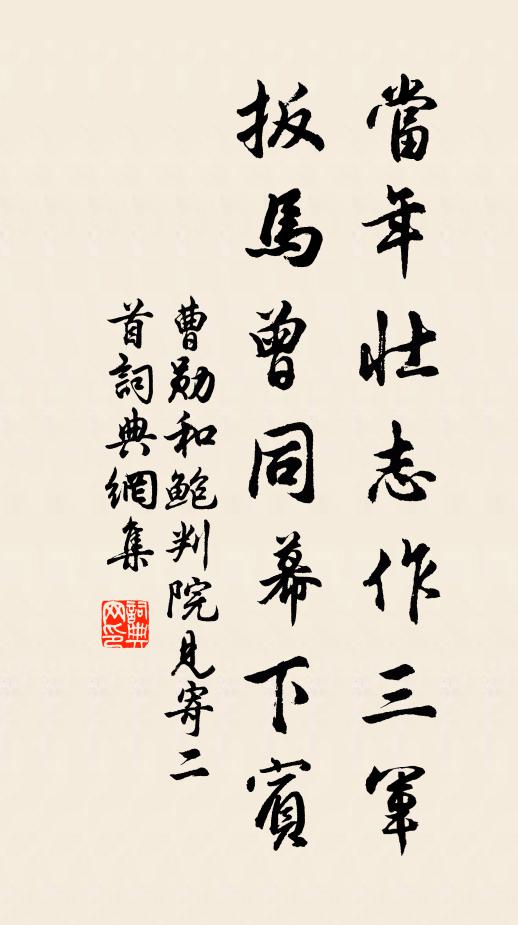 當年壯志作三軍
扳馬曾同幕下賓
曹勛和鮑判院見寄二
首詞典網集
詞典
网印